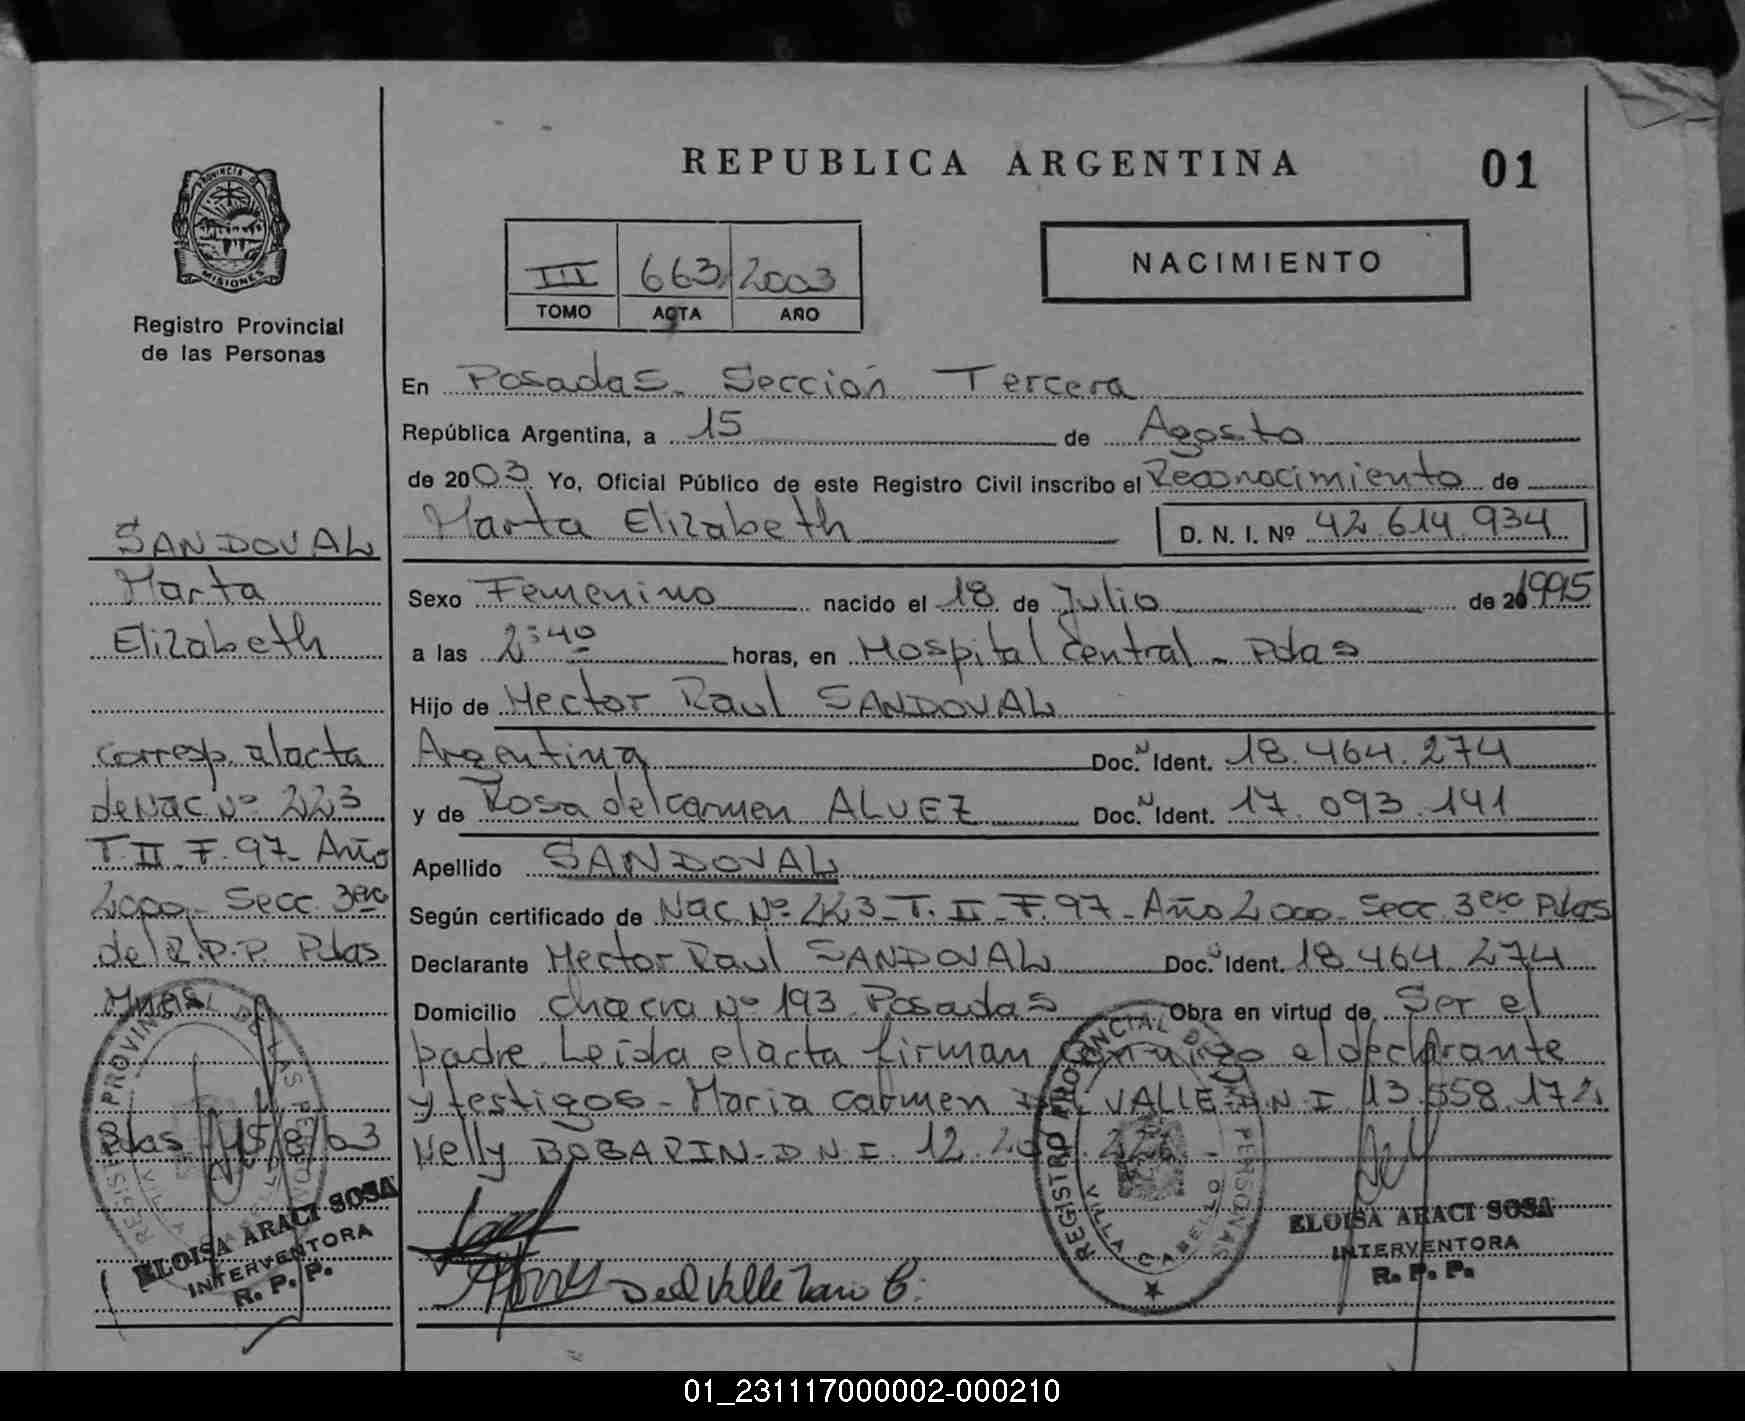 REPUBLICA ARGENTINA
01
PROVINCIA DE
MISIONES
Registro Provincial
de las Personas
III 663 2003
TOMO ACTA AÑO
NACIMIENTO
En Posadas - Sección Tercera
República Argentina, a 15 de Agosto
de 2003 Yo, Oficial Público de este Registro Civil inscribo el Reconocimiento de
Marta Elizabeth
D. N. I. Nº 42.614.934
Sexo Femenino nacido el 18 de Julio de 20 1995
a las 2:40 horas, en Hospital Central - Pdas
Hijo de Hector Raul SANDOVAL
Argentina Doc.N Ident. 18.464.274
y de Rosa del carmen ALVEZ Doc.N Ident. 17.093.141
Apellido SANDOVAL
Según certificado de Nac Nº 223 - T. II - F. 97 - Año 2000 - Secc 3era Pdas
Declarante Hector Raul SANDOVAL Doc. Ident. 18.464.274
Domicilio Chacra Nº 193 Posadas Obra en virtud de Ser el
padre. Leída el acta firman conmigo el declarante
y testigos - Maria Carmen VALLE D.N.I 13.558.172
Nelly BOBARIN - D.N.I. 12.
SANDOVAL
Marta
Elizabeth
corresp. al acta
de Nac Nº 223
T. II - F. 97 - Año
2000 - Secc 3era
del R.P.P. Pdas
Mnes.
Pdas 15/8/03
REGISTRO PROVINCIAL DE LAS PERSONAS
VILLA
ELOISA ARACI SOSA
INTERVENTORA
R. P. P.
Del Valle
REGISTRO PROVINCIAL DE PERSONAS
VILLA CABELLO
ELOISA ARACI SOSA
INTERVENTORA
R. P. P.
01_231117000002-000210